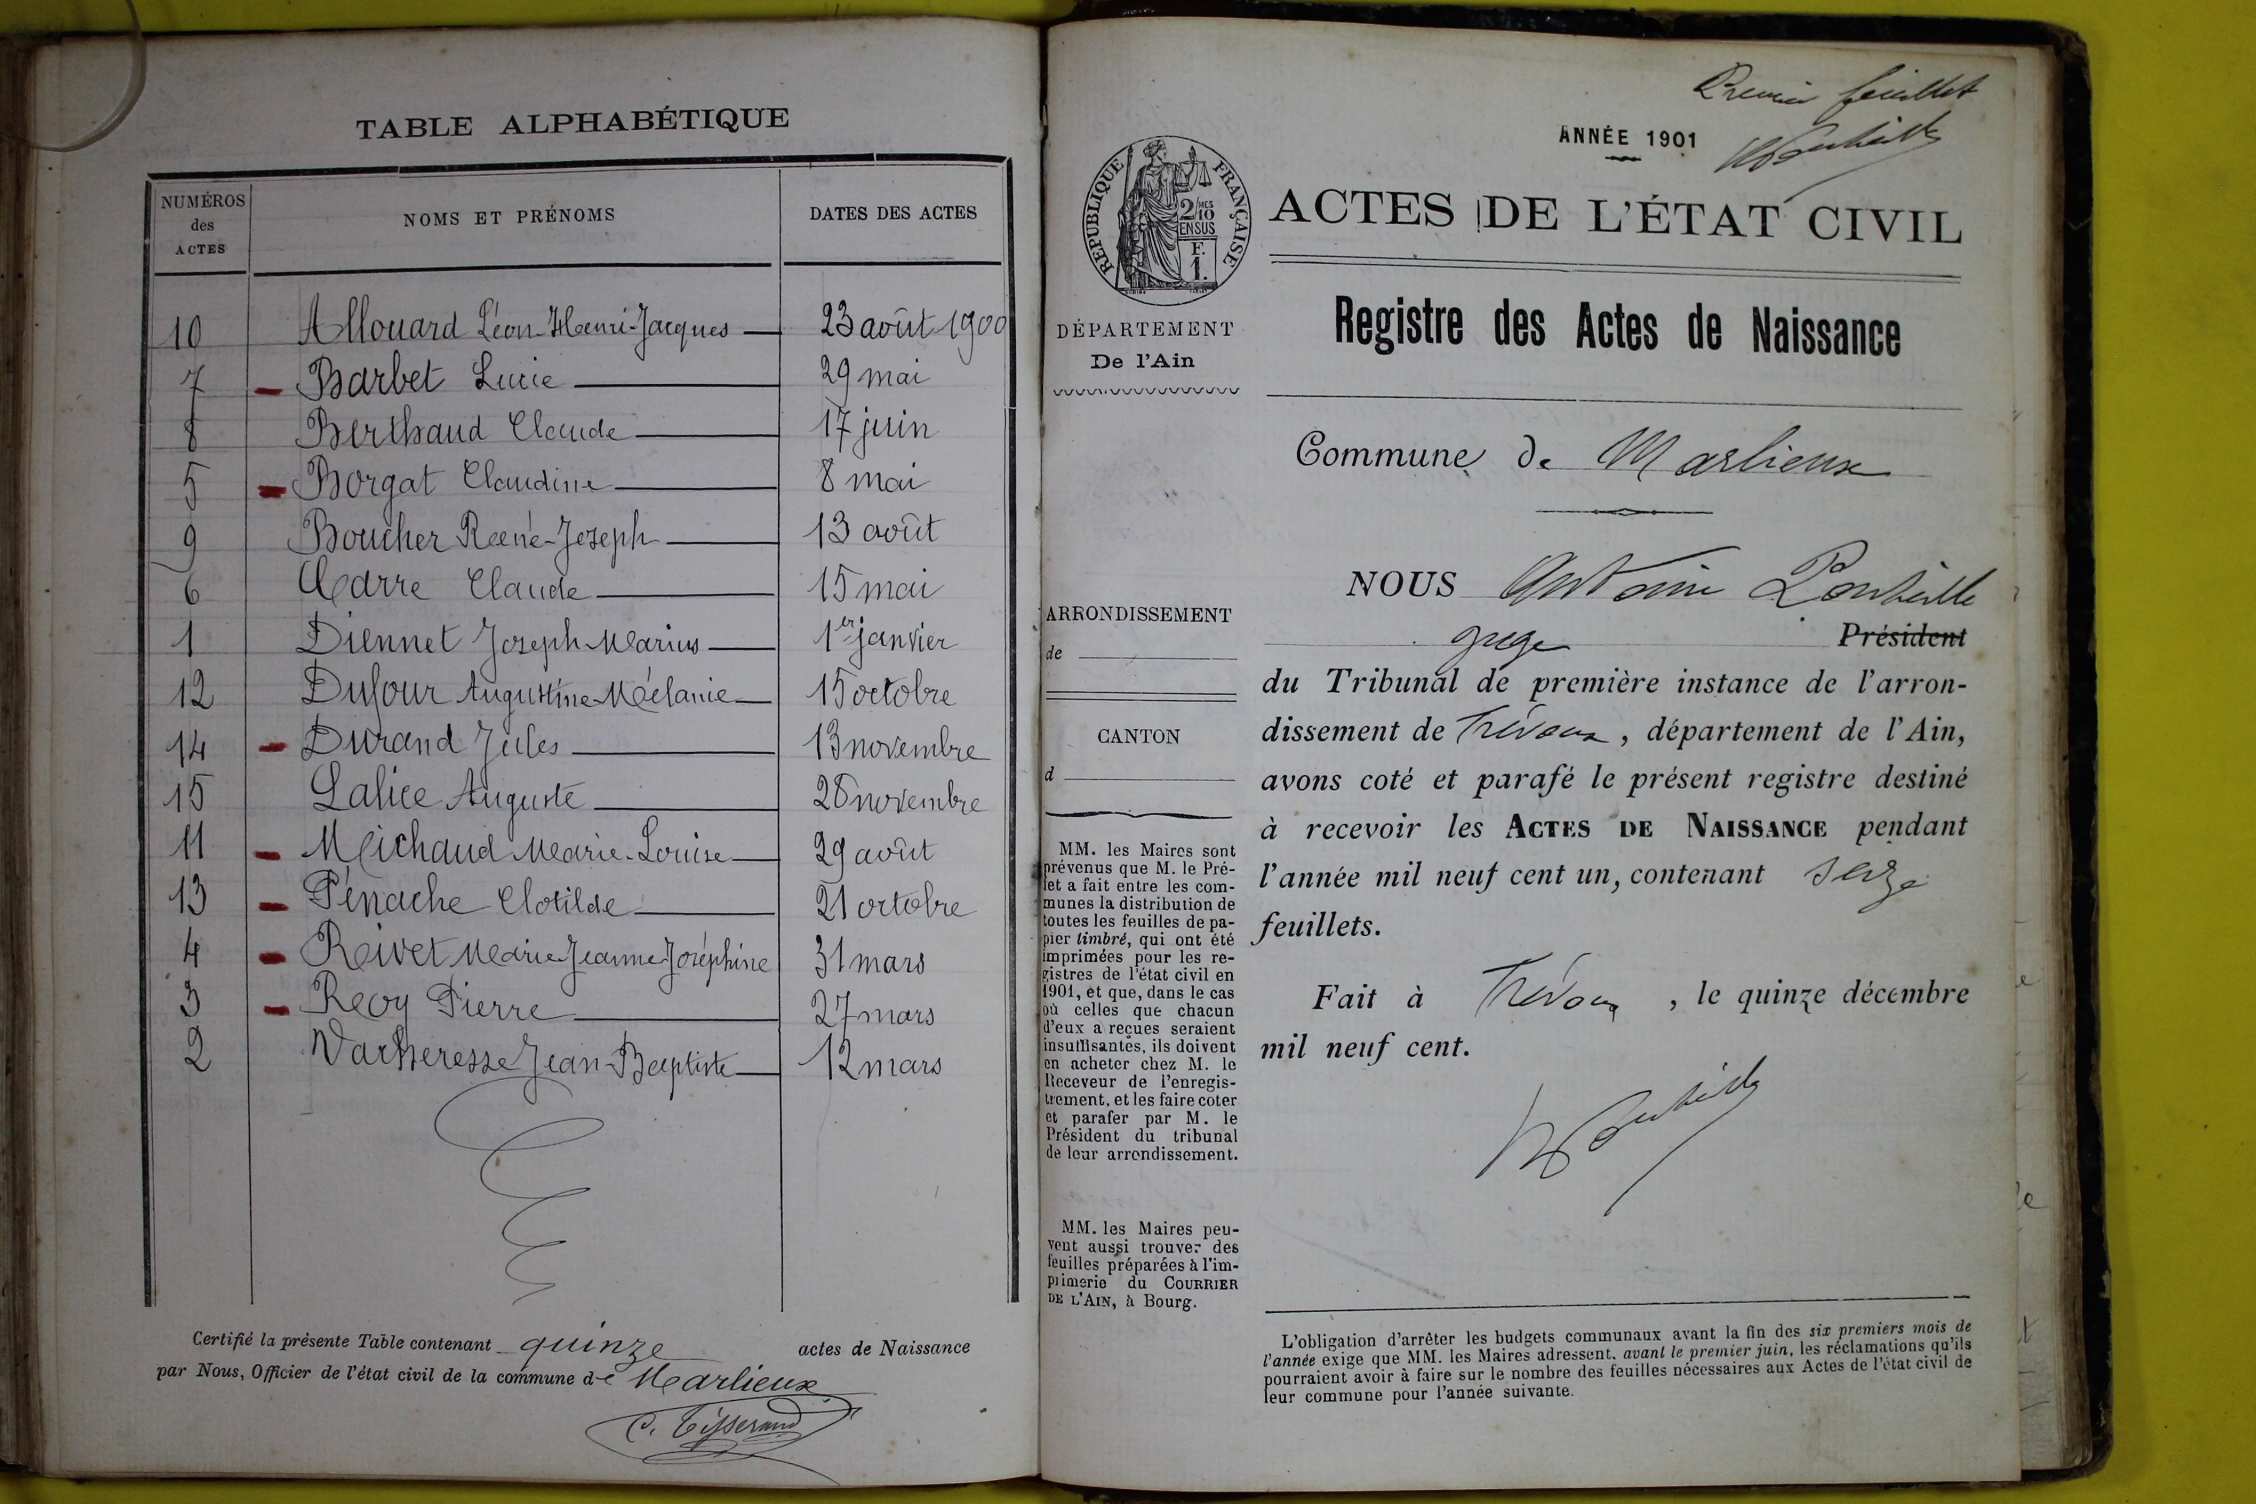 TABLE ALPHABÉTIQUE
NUMÉROS des ACTES NOMS ET PRÉNOMS DATES DES ACTES
10 Allouard Léon-Henri-Jacques 23 août 1900
7 Barbet Lucie 29 mai
8 Berthaud Claude 17 juin
5 Borgat Claudine 8 mai
9 Boucher René-Joseph 13 août
6 Carre Claude 15 mai
1 Diennet Joseph-Marius 1er janvier
12 Dufour Augustine-Mélanie 15 octobre
14 Durand Jules 13 novembre
15 Lalice Auguste 28 novembre
11 Michaud Marie-Louise 29 août
13 Pénache Clotilde 21 octobre
4 Rivet Marie Jeanne Joséphine 31 mars
3 Roy Pierre 27 mars
2 Jean-Baptiste 12 mars
Certifié la présente Table contenant quinze actes de Naissance
par Nous, Officier de l'état civil de la commune de Marlieux
C. Tisserand
Premier feuillet
ANNÉE 1901
RÉPUBLIQUE FRANÇAISE
2/10MES
EN SUS
F.
1.
ACTES DE L'ÉTAT CIVIL
DÉPARTEMENT
De l'Ain
Registre des Actes de Naissance
Commune de Marlieux
ARRONDISSEMENT
de
CANTON
d
MM. les Maires sont
prévenus que M. le Pré-
fet a fait entre les com-
munes la distribution de
toutes les feuilles de pa-
pier timbré, qui ont été
imprimées pour les re-
gistres de l'état civil en
1901, et que, dans le cas
où celles que chacun
d'eux a reçues seraient
insuffisantes, ils doivent
en acheter chez M. le
Receveur de l'enregis-
trement, et les faire coter
et parafer par M. le
Président du tribunal
de leur arrondissement.
MM. les Maires peu-
vent aussi trouver des
feuilles préparées à l'im-
primerie du COURRIER
DE L'AIN, à Bourg.
NOUS Antoine
juge Président
du Tribunal de première instance de l'arron-
dissement de Trévoux, département de l'Ain,
avons coté et parafé le présent registre destiné
à recevoir les ACTES DE NAISSANCE pendant
l'année mil neuf cent un, contenant seize
feuillets.
Fait à Trévoux, le quinze décembre
mil neuf cent.
L'obligation d'arrêter les budgets communaux avant la fin des six premiers mois de
l'année exige que MM. les Maires adressent, avant le premier juin, les réclamations qu'ils
pourraient avoir à faire sur le nombre des feuilles nécessaires aux Actes de l'état civil de
leur commune pour l'année suivante.